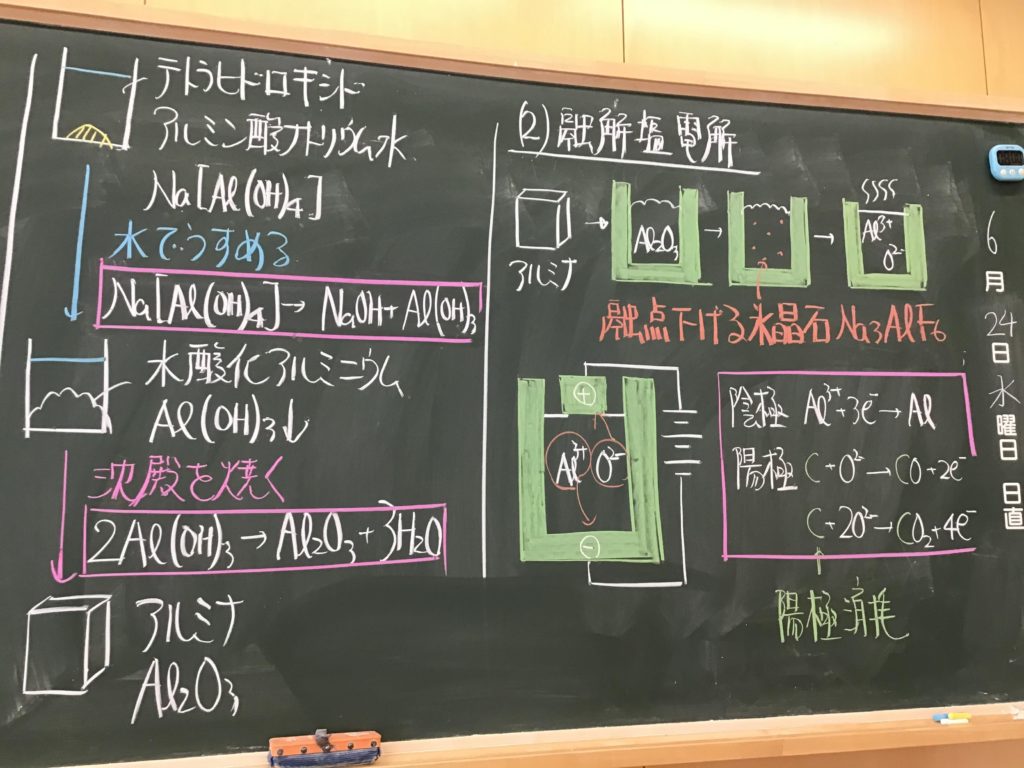 テトラヒドロキシド
アルミン酸ナトリウム水
Na[Al(OH)₄]
水でうすめる
Na[Al(OH)₄] → NaOH + Al(OH)₃
水酸化アルミニウム
Al(OH)₃↓
沈殿を焼く
2Al(OH)₃ → Al₂O₃ + 3H₂O
アルミナ
Al₂O₃
(2) 融解塩電解
アルミナ
→
Al₂O₃
→
→
Al³⁺
O²⁻
融点下げる氷晶石 Na₃AlF₆
⊕
Al³⁺ O²⁻
⊖
陰極 Al³⁺ + 3e⁻ → Al
陽極 C + O²⁻ → CO + 2e⁻
C + 2O²⁻ → CO₂ + 4e⁻
陽極消耗
6月24日水曜日 日直